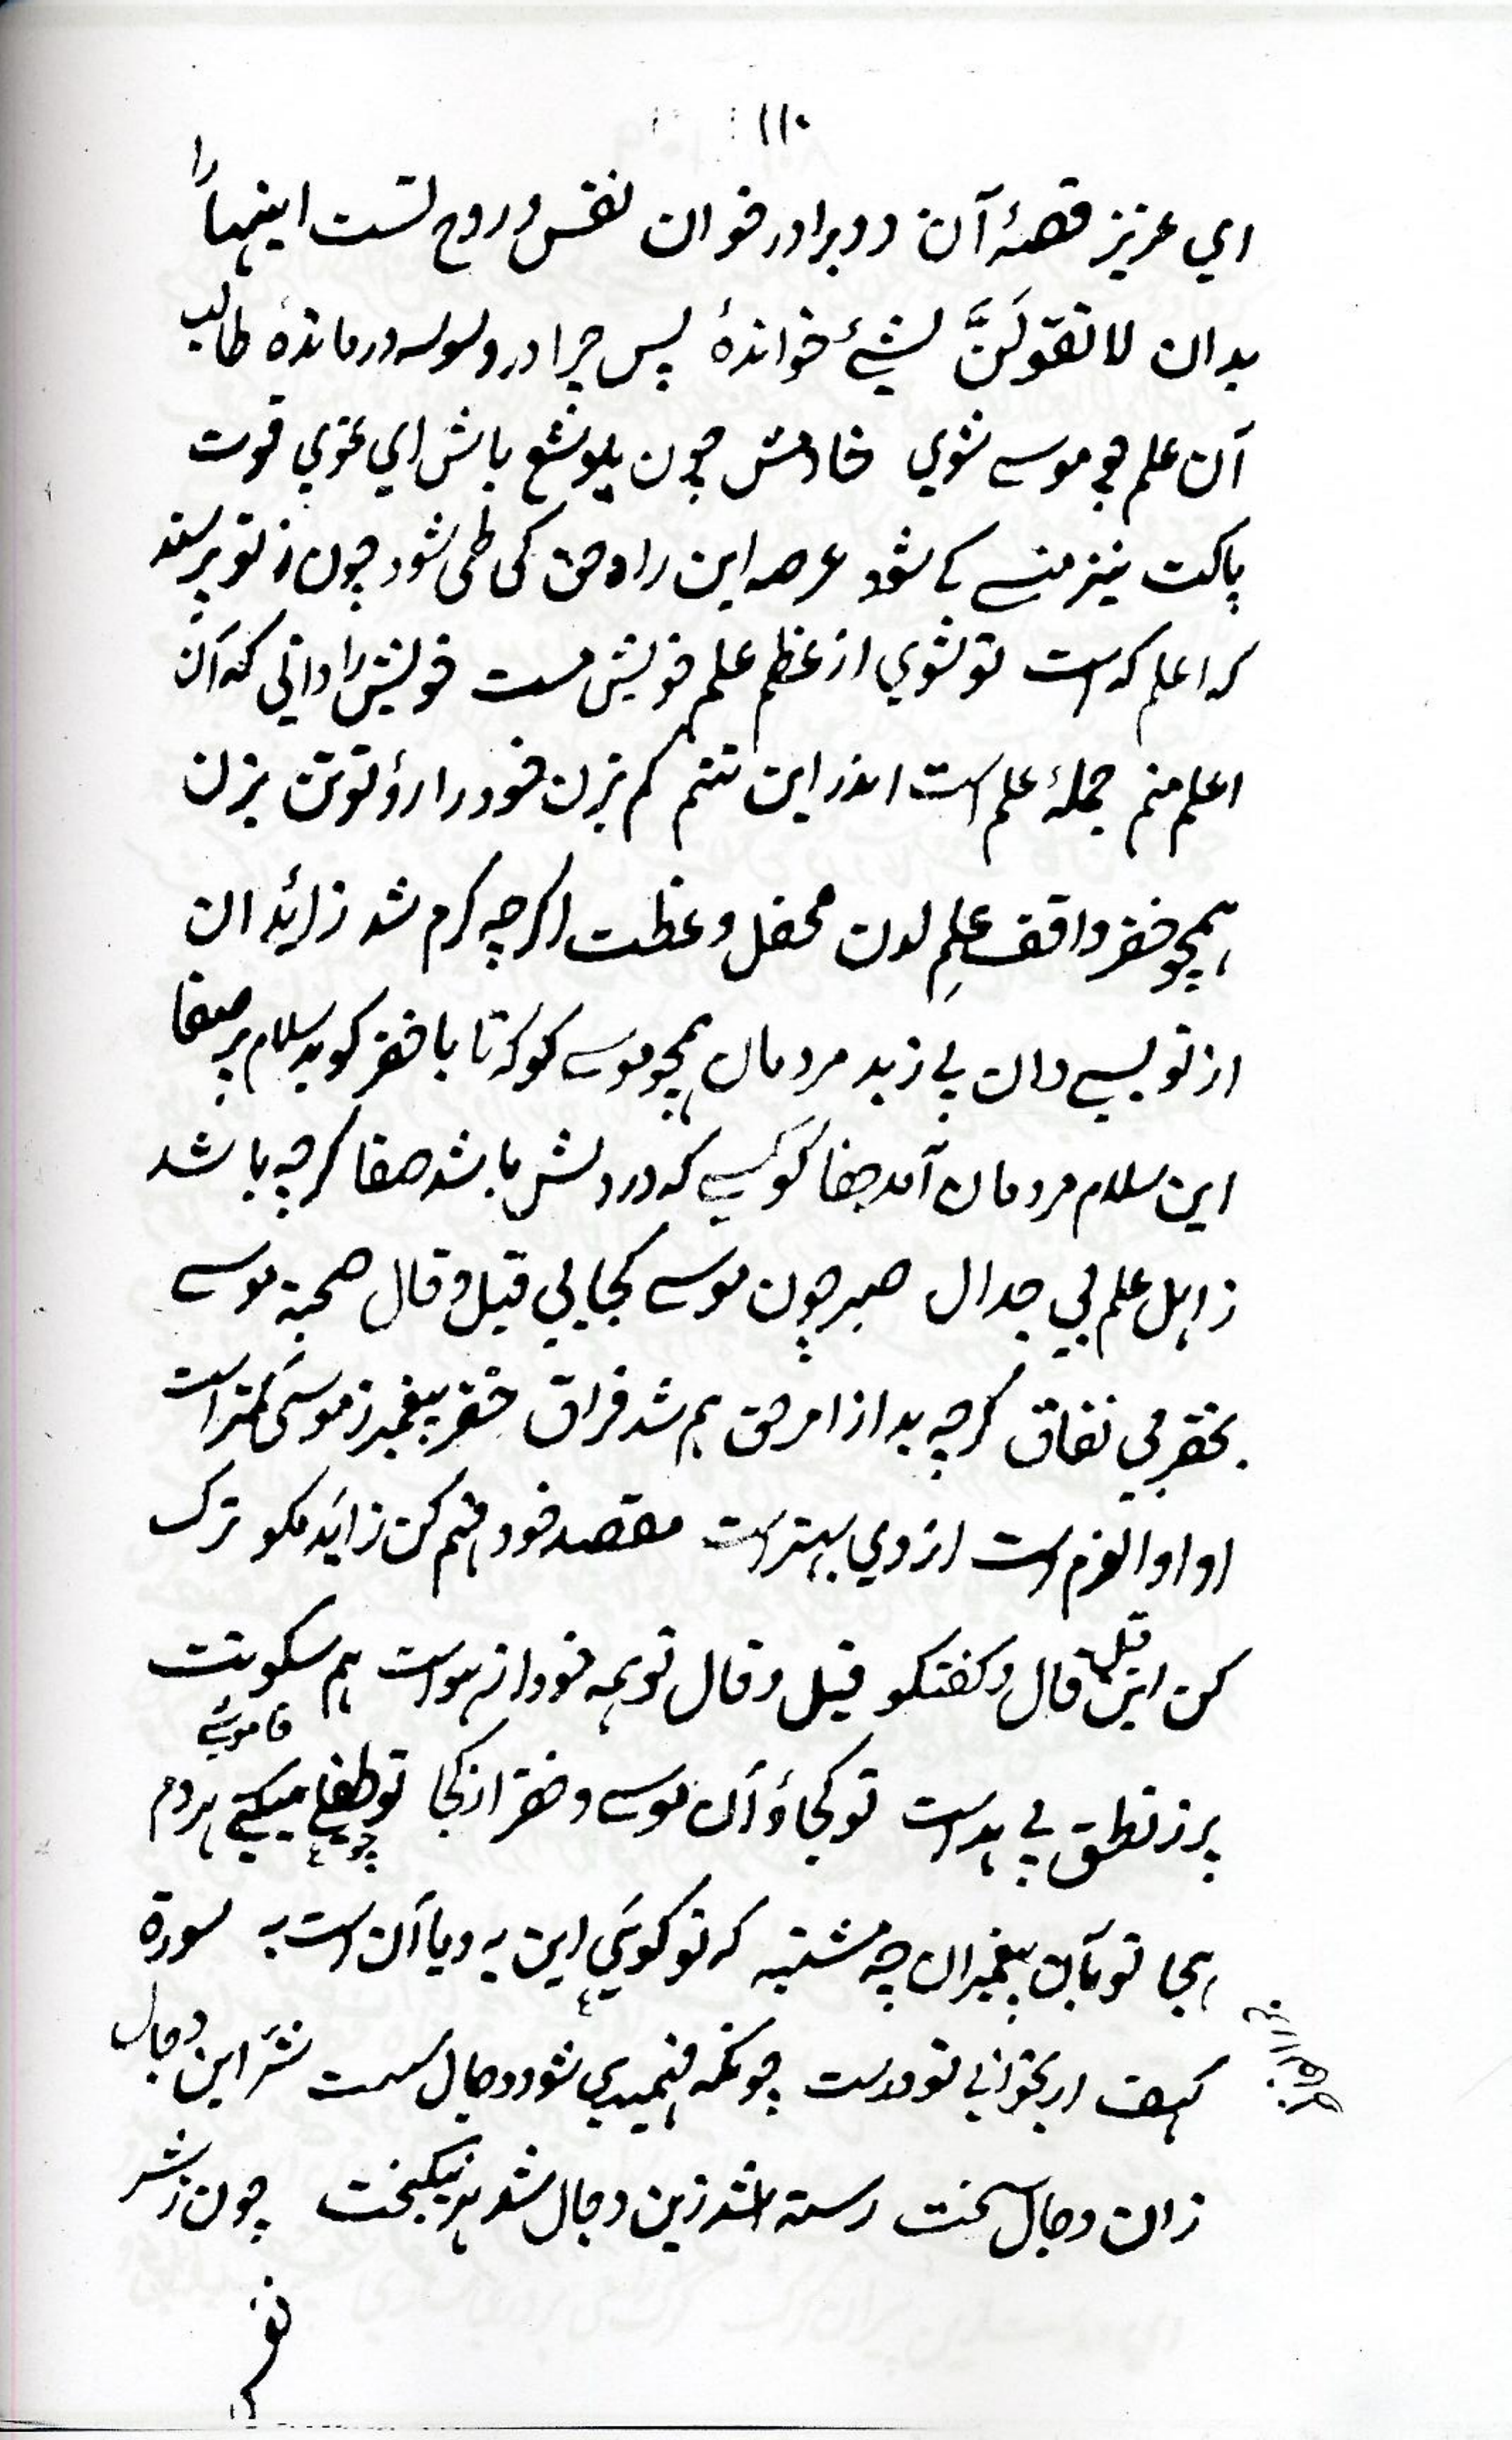 ۱۱۰
اي عزيز قصۀ آن دو برادر خوان نفس و روح تست اينها را
بدان لا تقولَنَّ لشيئٍ خواندۀ پس چرا در وسوسه درماندۀ طالب
آن علم چو موسے شوي خادمش چون يوشع باش اي غوي قوت
پاکت نيز منسے کے شود عرصه اين راه حق کی طی شود چون ز تو پرسند
که اعلم که است تو شوي از عظم علم خويش مست خويش را داني که آن
اعلم منم جملۀ علم است اندر اين تنم کم بزن خود را رو تو تن بزن
همچو خضر واقف علمِ لدن محفل وعظت اگرچه گرم شد زائد ان
از تو بسے دان پے زبد مردمان همچو موسے کو که تا با خضر گويد سلام پر صفا
اين سلام مردمان آمد جفا کو کسے که در دلش باشد صفا گرچه باشد
ز اهل علم بي جدال صبر چون موسے کجا بي قيل و قال صحبة موسے
بخضر بي نفاق گرچه بد از امر حق هم شد فراق خضر پيغمبر ز موسیٰ کمتر است
او اولوالعزم است از وي بهتر است مقصد خود فهم کن زايد مگو ترک
کن اين قيل قال و گفتگو قيل و قال تو همه خود از هواست هم سکوتت
خاموشے
پر ز نطق بے هداست تو کجا ؤ آن موسے و خضر از کجا تو چو طفلے ميکنے هر دم
هجا تو بآن پيغمبران چه مشتبه که تو گوئي اين به و يا آن است به سورة
کهف ار بخواني تو درست چونکه فهميدي شود دجال سست شر اين دجال
زان دجال سخت رسته شد زين دجال شد هر نيکبخت چون ز شر
نفس